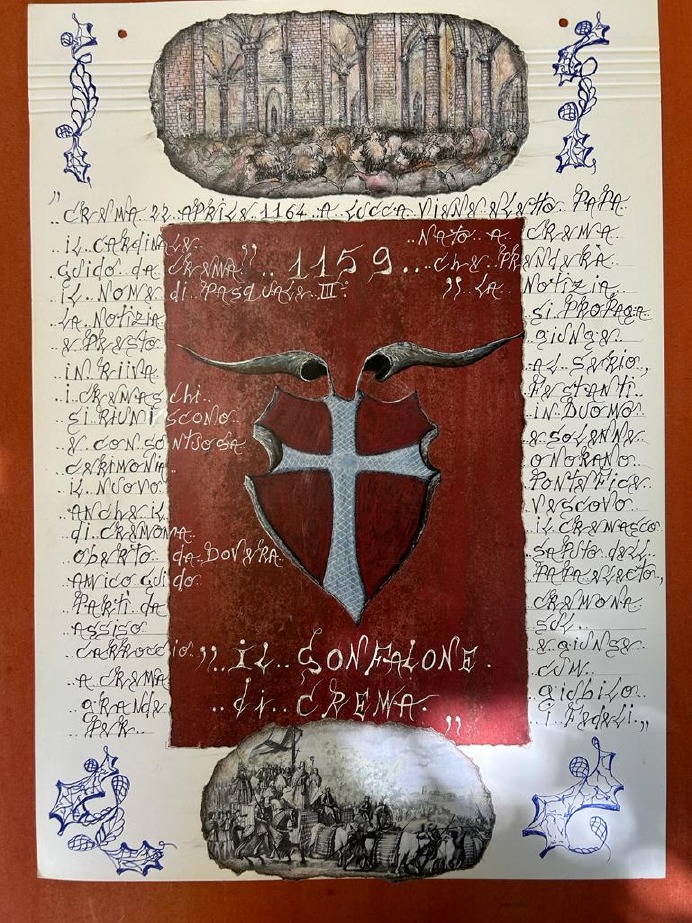 „ CREMA 22 APRILE 1164 A LUCCA VIENE ELETTO PAPA
IL CARDINALE NATO A CREMA
GUIDO DA CREMA „.. 1159 .. CHE PRENDERÀ
IL NOME di PASQUALE III: „ LA NOTIZIA
LA NOTIZIA Si PROPAGA
E PRESTO GIUNGE
IN RIVA AL SERIO,
i CREMASCHI FESTANTI
Si RIUNISCONO IN DUOMO
E CON SONTUOSA E SOLENNE
CERIMONIA ONORANO
IL NUOVO PONTEFICE
ANCHE IL VESCOVO
di CREMONA IL CREMASCO
OBERTO DA DOVERA SAPUTO DELL
AMICO GUIDO PAPA ELECTO,
PARTI DA CREMONA
ASSISO SUL
CARROCCIO E GIUNSE
A CREMA CUM
GRANDE GIUBILO
PER i FEDELI „
„ IL GONFALONE
di CREMA „